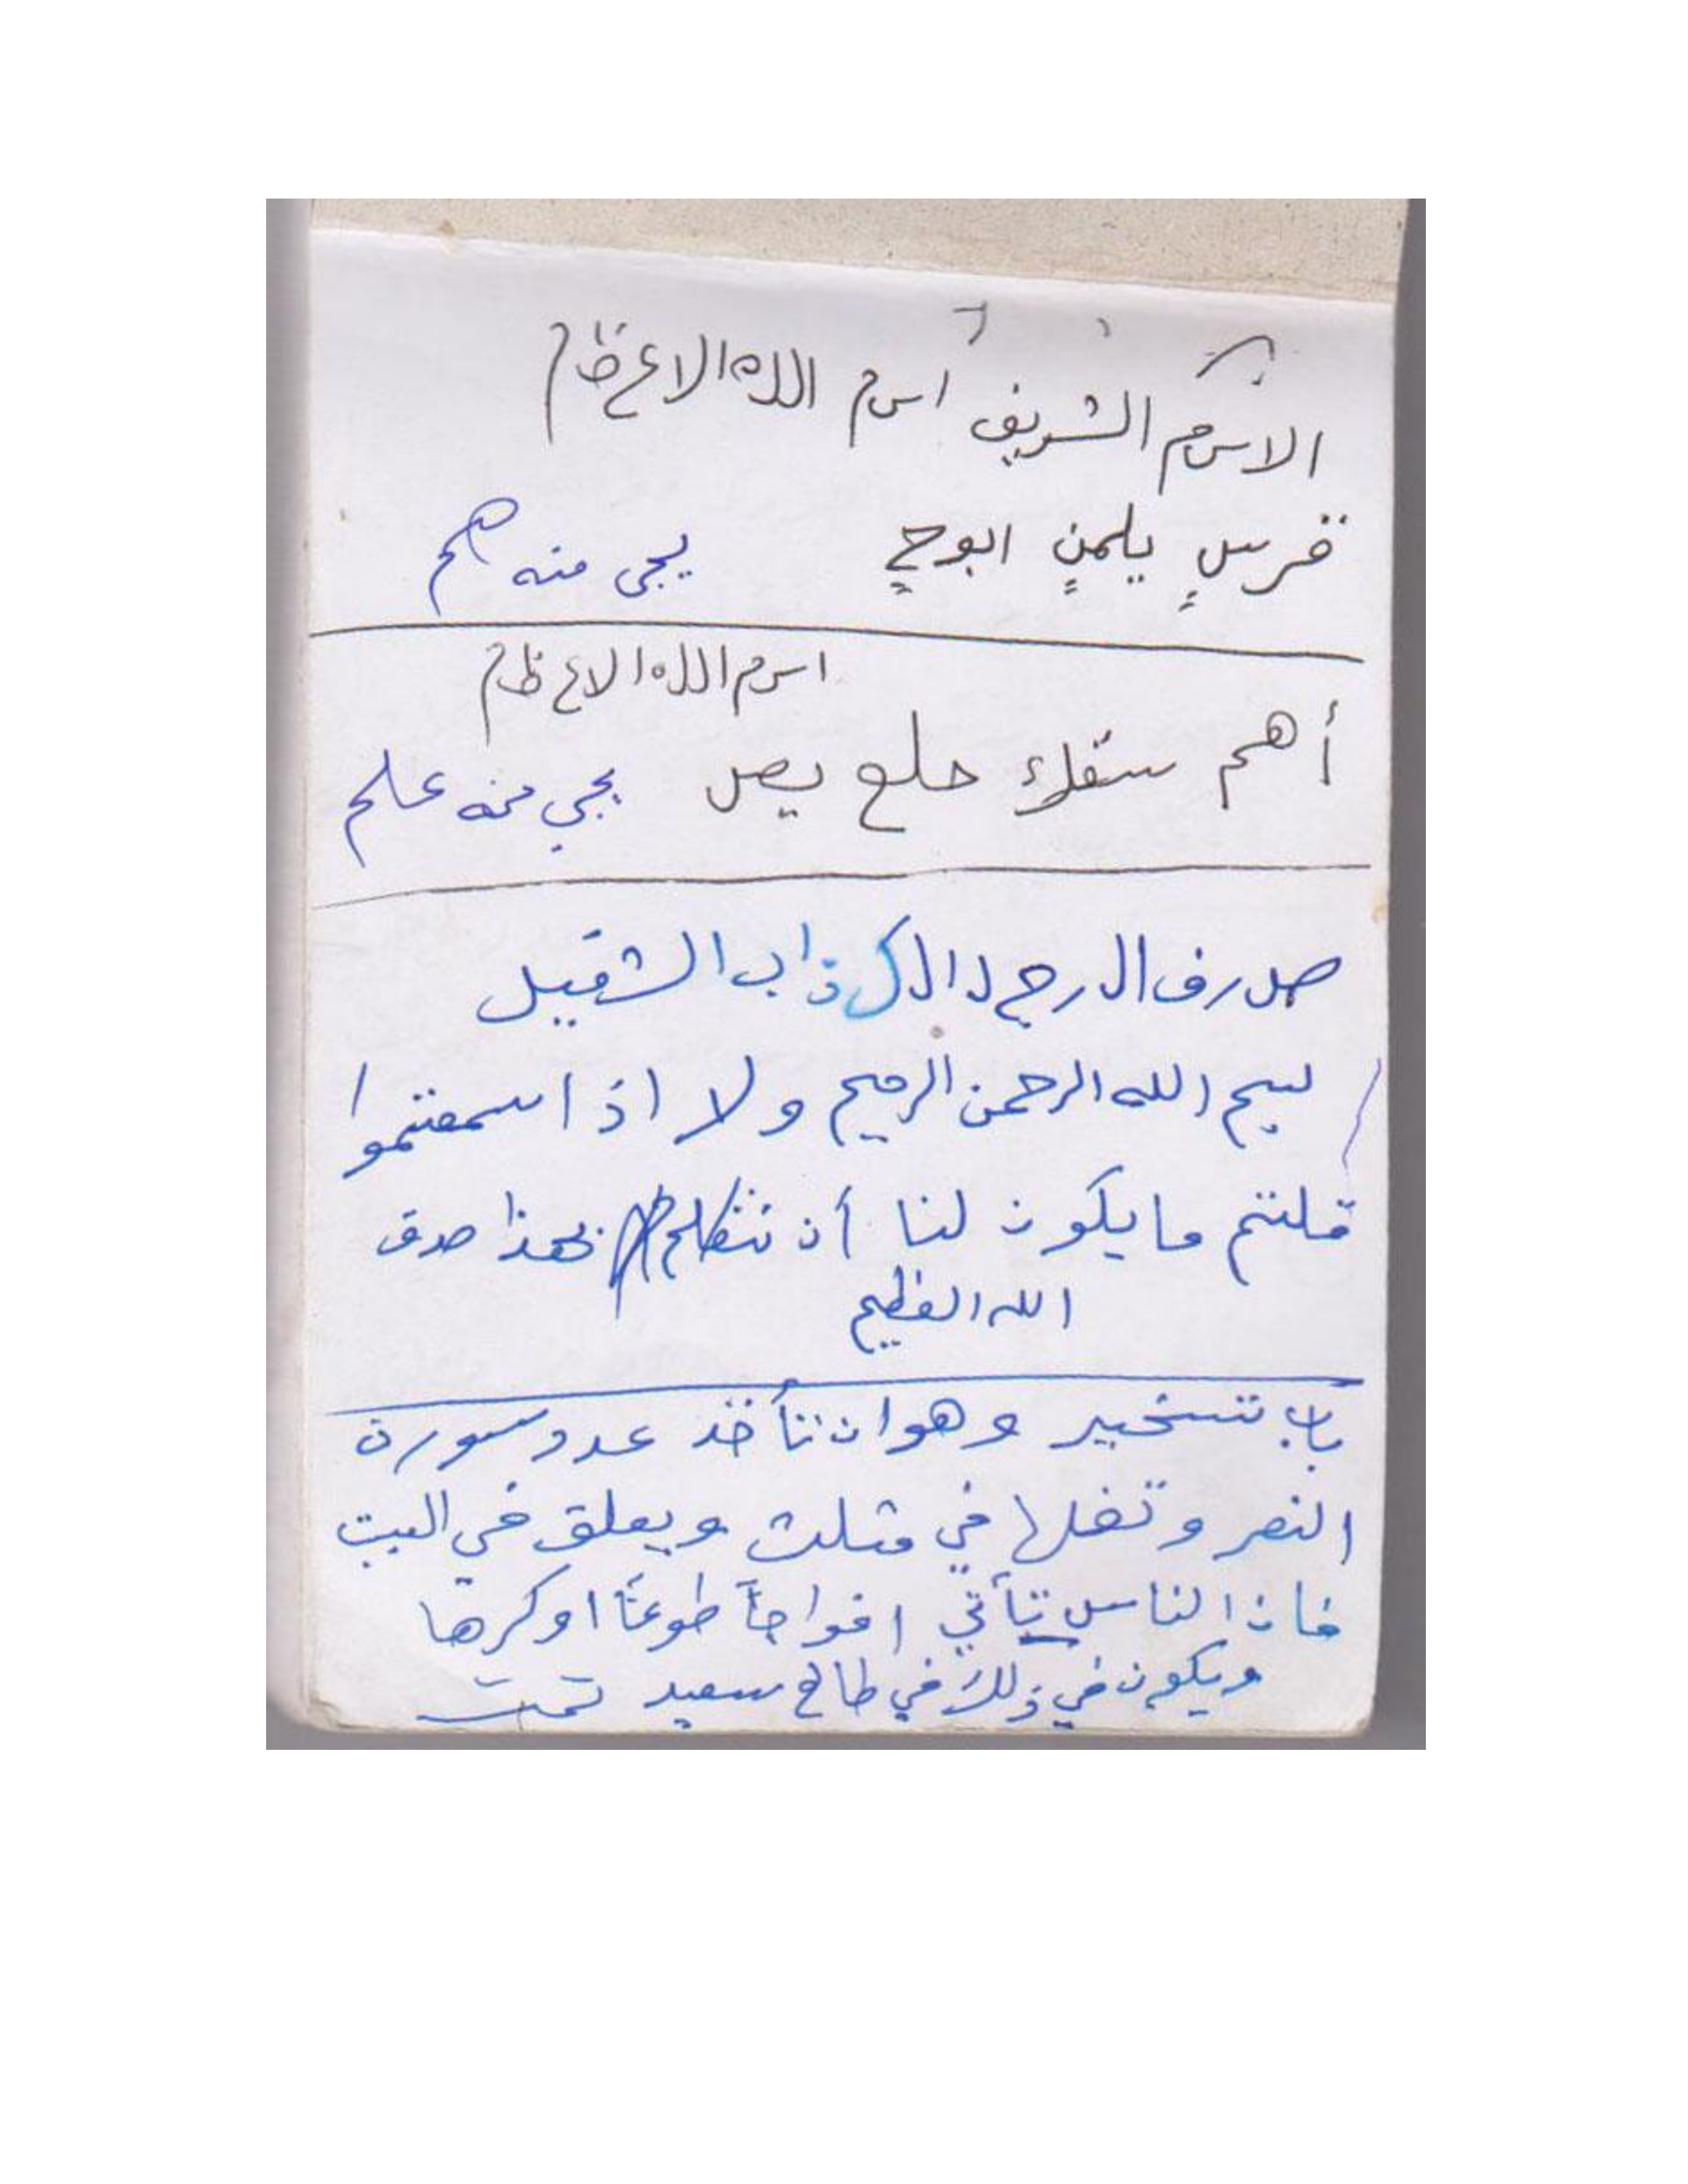 الاس م الشريف اس م ال ل ه ال ا ع ظ م
يجي منه هم
اس م ال ل ه ال ا ع ظ م
أهم سقك حلع يص يجي منه علم
ص رف ال رج ل ال ك ذ اب الشقيل
بسم الله الرحمن الرحيم ولا اذا سمعتموا
قلتم ما يكون لنا أن نتكلم بهذا صدق
الله العظيم
باب تسخير وهو ان تأخذ عدد سورة
النصر وتغلها في مثلث ويعلق في البيت
فان الناس تأتي افواجاً طوعاً او كرها
ويكون في ذلك في طالع سعيد تمت